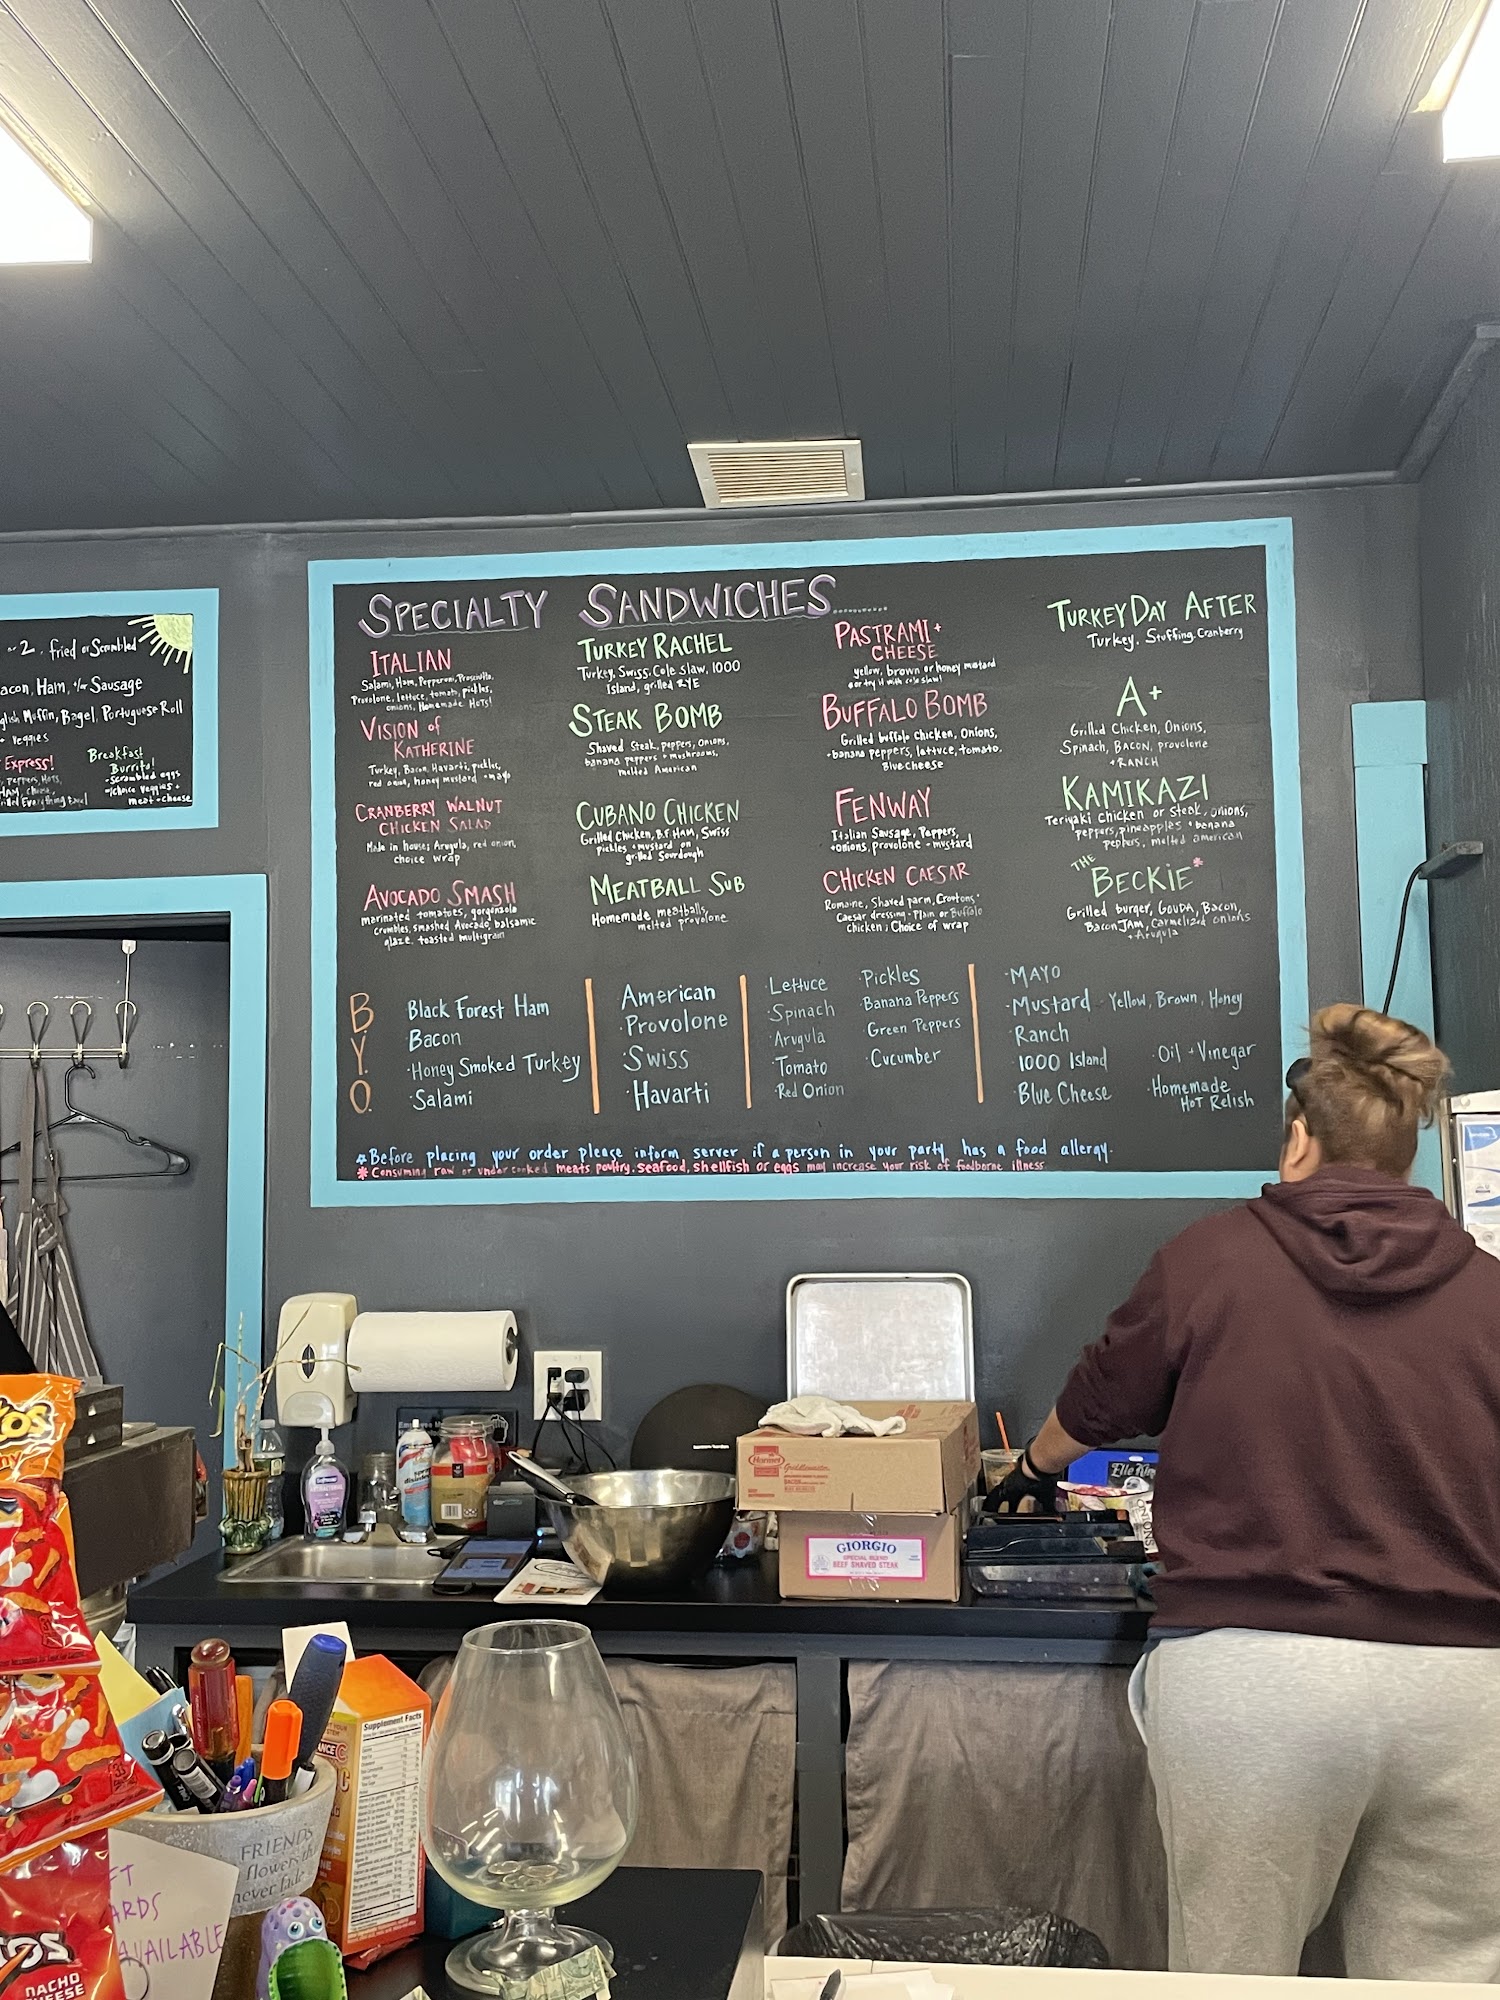 or 2, fried or Scrambled
acon, Ham, +/or Sausage
glish Muffin, Bagel, Portuguese Roll
+ veggies
Express!
, Peppers, Hots,
HAM, cheese,
Everything Bagel
Breakfast
Burrito!
-scrambled eggs
-choice veggies +
meat + cheese
SPECIALTY SANDWICHES........
ITALIAN
Salami, Ham, Pepperoni, Prosciutto,
Provolone, lettuce, tomato, pickles,
onions, Homemade HOTS!
VISION of
KATHERINE
Turkey, Bacon, Havarti, pickles,
red onion, honey mustard + mayo
CRANBERRY WALNUT
CHICKEN SALAD
Made in house; Arugula, red onion,
choice wrap
AVOCADO SMASH
marinated tomatoes, gorgonzola
crumbles, smashed Avocado, balsamic
glaze. toasted multigrain
TURKEY RACHEL
Turkey, Swiss, Cole slaw, 1000
Island, grilled RYE
STEAK BOMB
Shaved Steak, peppers, onions,
banana peppers + mushrooms,
melted American
CUBANO CHICKEN
Grilled Chicken, B.F. HAM, Swiss
pickles + mustard on
grilled Sourdough
MEATBALL SUB
Homemade meatballs,
melted provolone
PASTRAMI +
CHEESE
yellow, brown or honey mustard
or try it with cole slaw!
BUFFALO BOMB
Grilled buffalo Chicken, Onions,
+banana peppers, lettuce, tomato.
Bluecheese
FENWAY
Italian Sausage, Peppers,
+onions, provolone + mustard
CHICKEN CAESAR
Romaine, Shaved parm, Croutons
Caesar dressing - Plain or Buffalo
Chicken; Choice of wrap
TURKEY DAY AFTER
Turkey, Stuffing, Cranberry
A+
Grilled Chicken, Onions,
Spinach, BACON, provolone
+ RANCH
KAMIKAZI
Teriyaki chicken or steak, onions,
peppers, pineapples + banana
peppers, melted american
THE
BECKIE*
Grilled burger, GOUDA, Bacon,
Bacon JAM, Carmelized onions
+ Arugula
B.
Y.
O.
Black Forest Ham
Bacon
·Honey Smoked Turkey
·Salami
American
·Provolone
·Swiss
·Havarti
·Lettuce
·Spinach
·Arugula
·Tomato
·Red Onion
·Pickles
·Banana Peppers
·Green Peppers
·Cucumber
·MAYO
·Mustard - Yellow, Brown, Honey
·Ranch
·1000 Island
·Blue Cheese
·Oil + Vinegar
·Homemade
HOT Relish
*Before placing your order please inform server if a person in your party has a food allergy.
*Consuming raw or undercooked meats, poultry, seafood, shellfish or eggs may increase your risk of foodborne illness
Hormel
GIORGIO
SPECIAL BLEND
BEEF SHAVED STEAK
Supplement Facts
FRIENDS
flowers th
never fade
FT
ARDS
AVAILABLE
NACHO
CHEESE